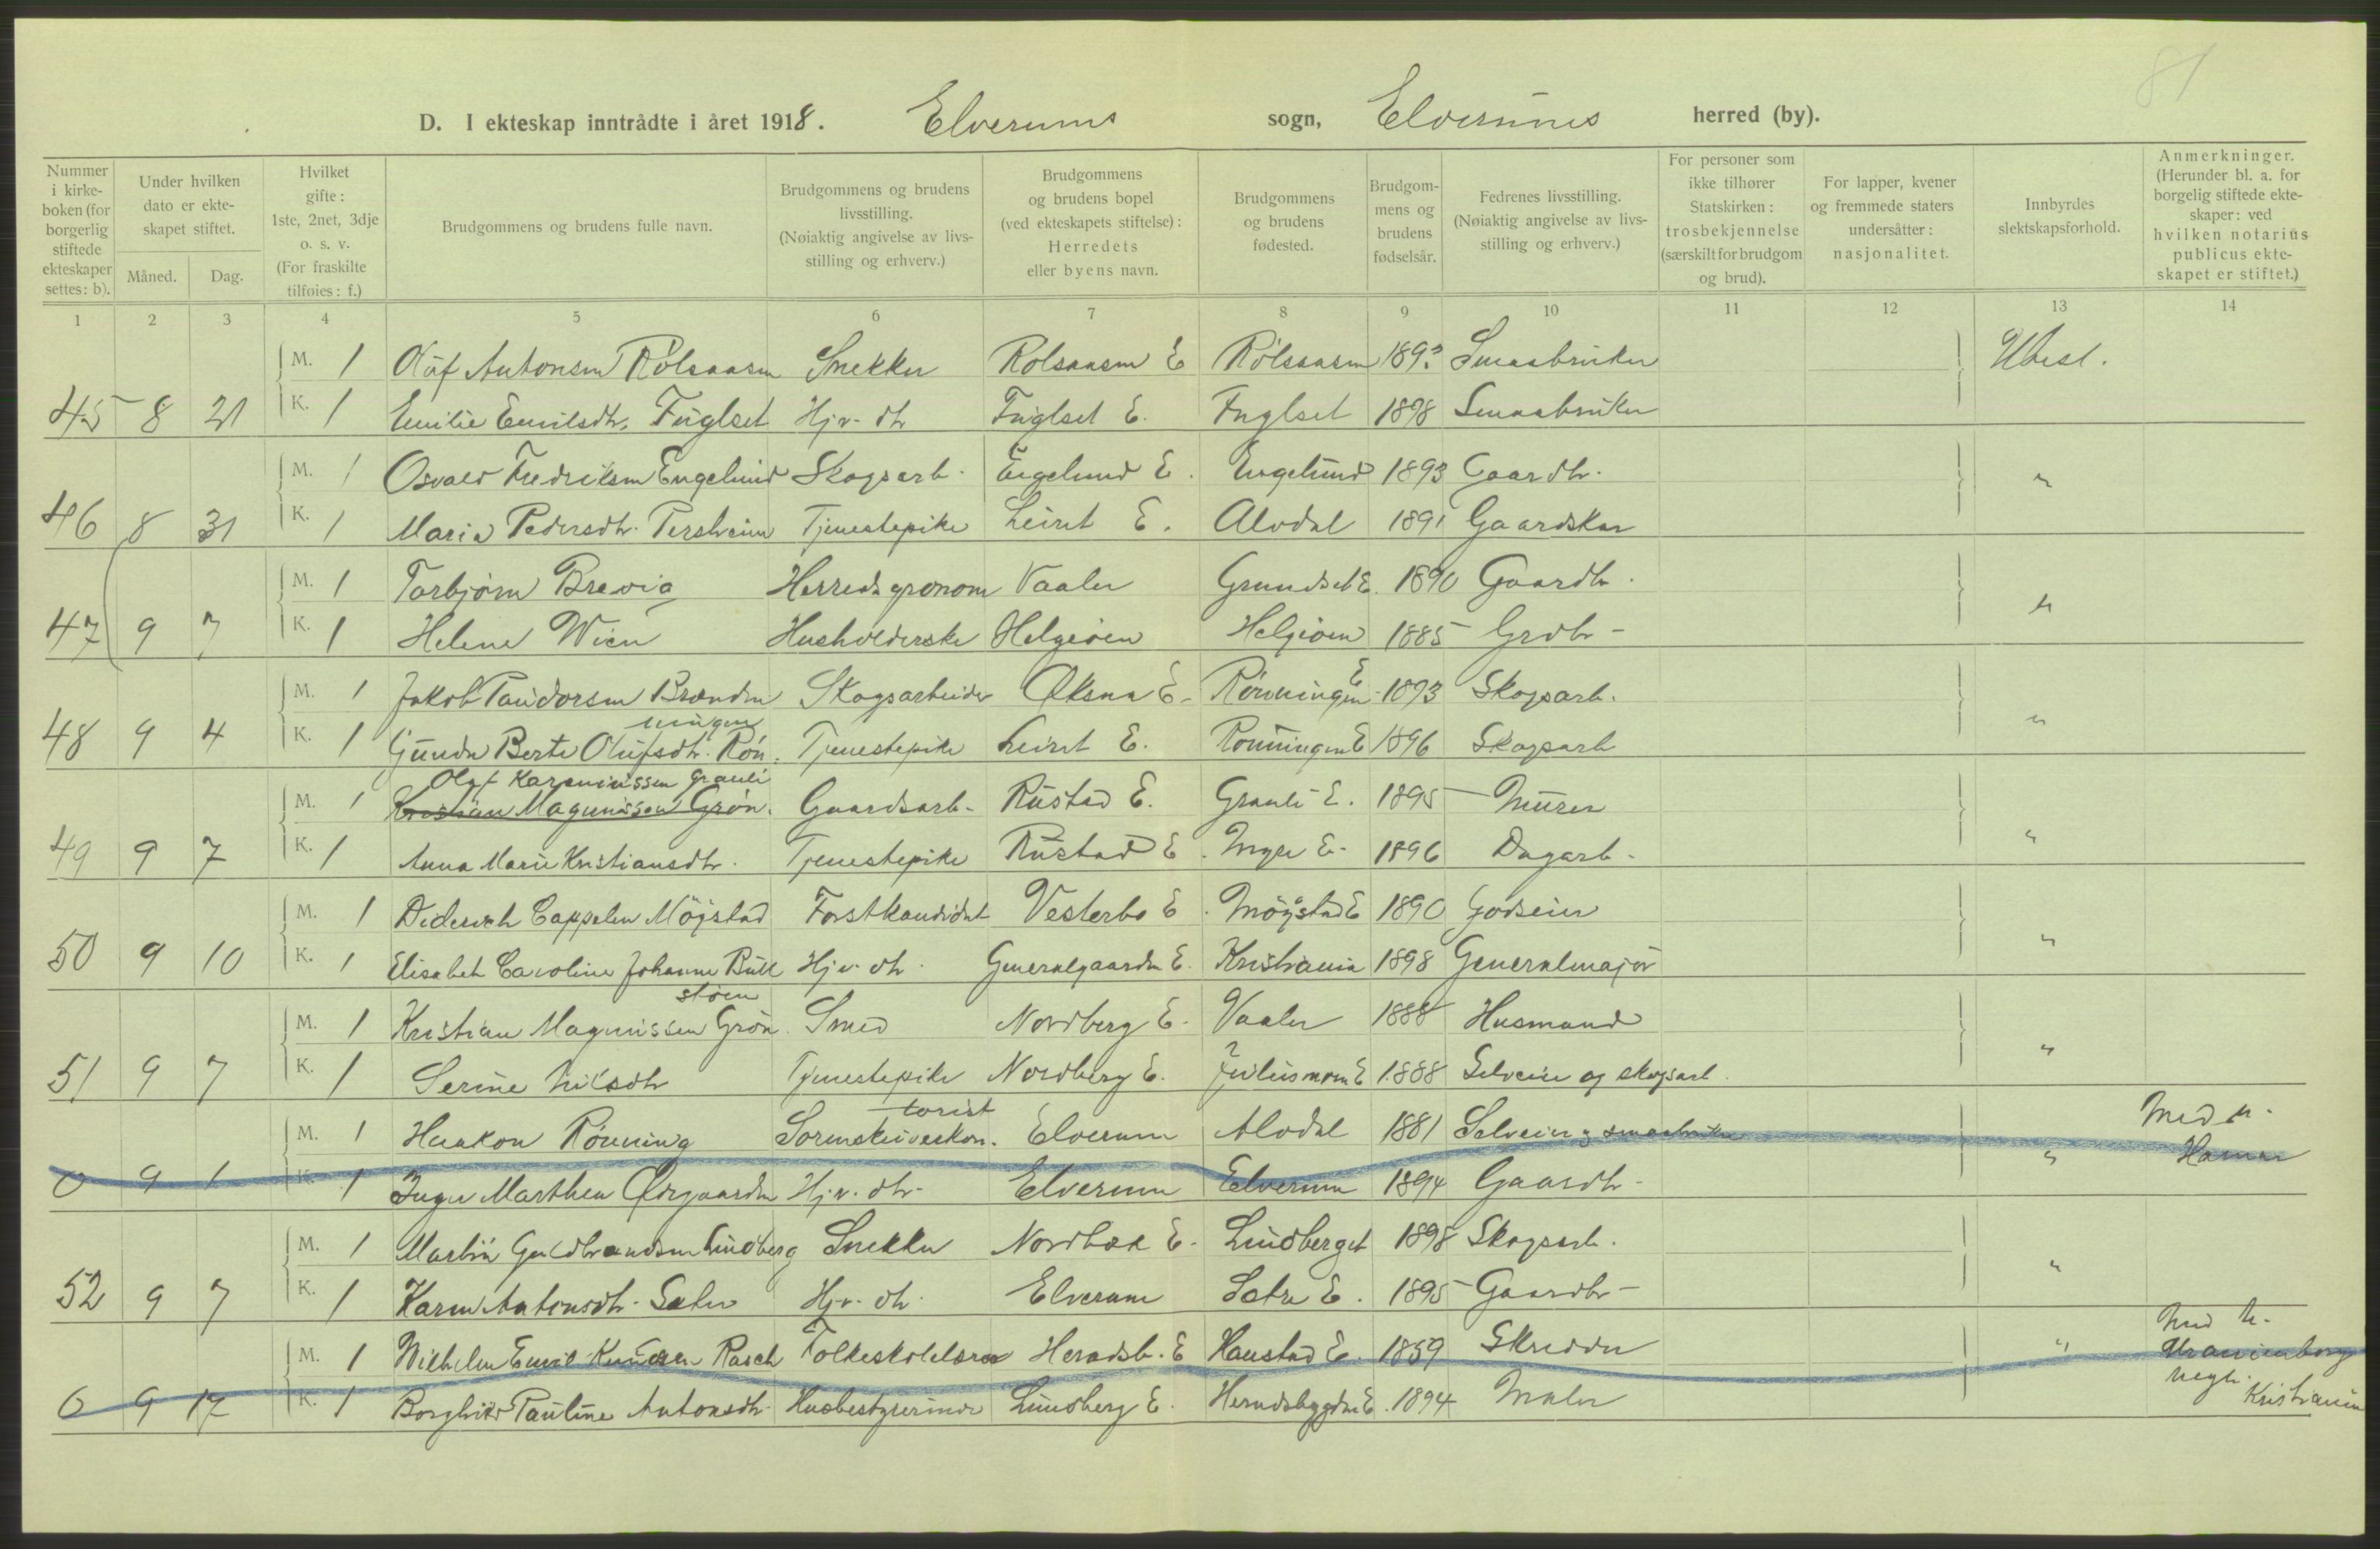 81
D. I ekteskap inntrådte i året 1918. Elverums sogn, Elverums herred (by).
Nummer i kirkeboken (for borgerlig stiftede ekteskaper settes: b).
Under hvilken dato er ekteskapet stiftet.
Måned. Dag.
Hvilket gifte: 1ste, 2net, 3dje o. s. v. (For fraskilte tilføies: f.)
Brudgommens og brudens fulle navn.
Brudgommens og brudens livsstilling. (Nøiaktig angivelse av livsstilling og erhverv.)
Brudgommens og brudens bopel (ved ekteskapets stiftelse): Herredets eller byens navn.
Brudgommens og brudens fødested.
Brudgommens og brudens fødselsår.
Fedrenes livsstilling. (Nøiaktig angivelse av livsstilling og erhverv.)
For personer som ikke tilhører Statskirken: trosbekjennelse (særskilt for brudgom og brud).
For lapper, kvener og fremmede staters undersåtter: nasjonalitet.
Innbyrdes slektskapsforhold.
Anmerkninger. (Herunder bl. a. for borgelig stiftede ekteskaper: ved hvilken notarius publicus ekteskapet er stiftet.)
1 2 3 4 5 6 7 8 9 10 11 12 13 14
M. 1 Olaf Antonsen Rolsaasen Snekker Rolsaasen E Rolsaasen 1893 Smaabruker Ubesl.
45 8 21 K. 1 Emilie Emilsdtr. Fuglset Hj.v. dtr Fuglset E. Fuglset 1898 Smaabruker
M. 1 Osvald Fredriksen Engelund Skogsarb. Engelund E. Engelund 1893 Gaardbr. "
46 8 31 K. 1 Maria Pedersdtr. Persheim Tjenestepike Leiret E. Alvdal 1891 Gaardskar
M. 1 Torbjørn Brevig Herredsgronom Vaaler Grundset E. 1890 Gaardbr. "
47 9 7 K. 1 Helene Wien Husholderske Helgeøen Helgeøen 1885 Grdbr-
M. 1 Jakob Paudorsen Brænden Skogsarbeider Øksna E- Rønningen E 1893 Skogsarb.
48 9 4 K. 1 Gunda Berte Olufsdtr. Rønningen Tjenestepike Leiret E. Rønningen E 1896 Skogsarb "
Olaf Kareniussen Grauli
M. 1 Kristian Magnussen Grøn. Gaardsarb- Rustad E. Grauli E. 1895 Murer
49 9 7 K. 1 Anna Marie Kristiansdtr. Tjenestepike Rustad E. Myre E. 1896 Dagarb. "
M. 1 Diderich Cappelen Møystad Forstkandidat Vesterbo E. Møystad E 1890 Godseier
50 9 10 K. 1 Elisabeth Caroline Johanne Bull Hj.v. dtr. Generalgaarden E. Kristiania 1898 Generalmajor "
støen
M. 1 Kristian Magnussen Grøn. Smed Nordberg E. Vaaler 1888 Husmand
51 9 7 K. 1 Serine Nilsdtr Tjenestepike Nordberg E. Juliusmoen E 1888 Selveier og skogsarb. "
M. 1 Haakon Rønning Sorenskriverkontorist Elverum Alvdal 1881 Selveier og smaabruker Med n.
0 9 1 K. 1 Inger Marthea Ødegaarden Hj.v. dtr- Elverum Elverum 1894 Gaardbr- " Hamar
M. 1 Martin Guldbrandsen Lindberg Snekker Nordbæk E- Lindberget 1898 Skogsarb.
52 9 7 K. 1 Karen Antonsdtr. Sætre Hj.v. dtr. Elverum Sætre E. 1895 Gaardbr- "
M. 1 Wilhelm Emil Knudsen Rasch Folkeskolelærer Heradsb. E Haustad E. 1859 Skredder " Med n. Uranienborg
0 9 17 K. 1 Borghild Pauline Antonsdtr. Husbestyrerinde Lindberg E. Heradsbygden E. 1894 Maler Megh. Kristiania